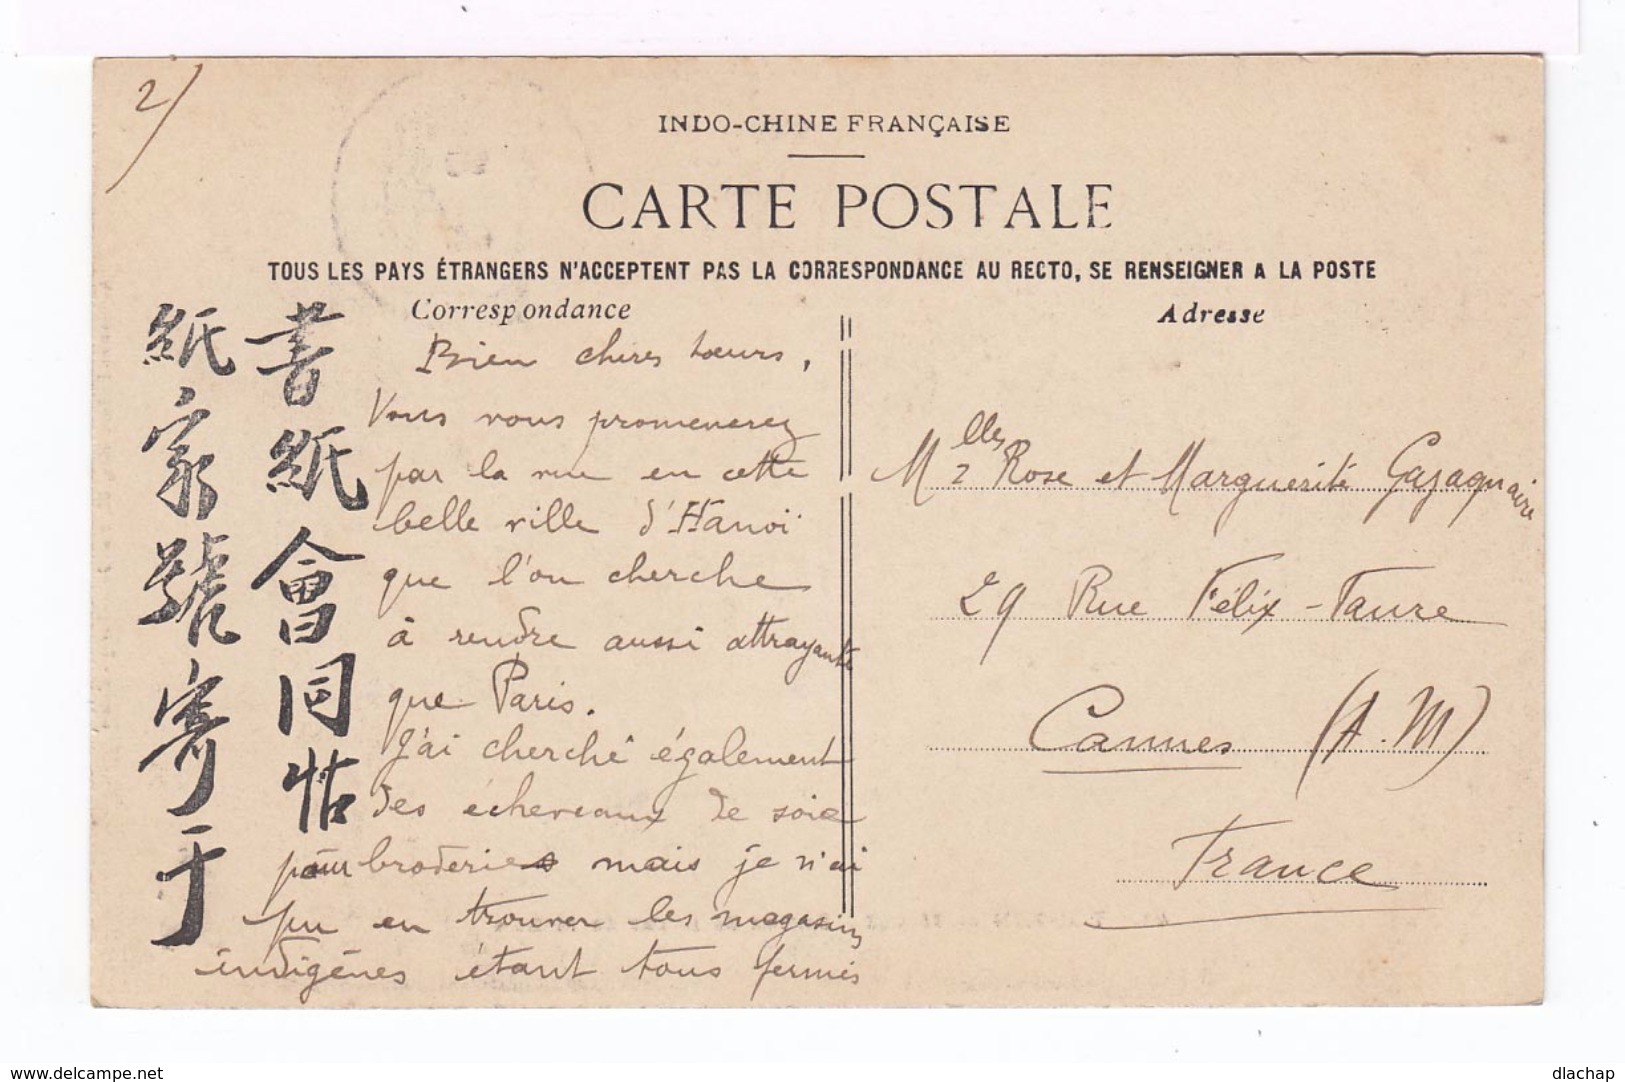 2/
INDO-CHINE FRANÇAISE
CARTE POSTALE
TOUS LES PAYS ÉTRANGERS N'ACCEPTENT PAS LA CORRESPONDANCE AU RECTO, SE RENSEIGNER A LA POSTE
Correspondance
Adresse
書紙會同帖
紙家號寄于
Bien chères sœurs,
Vous vous promenerez
par la rue en cette
belle ville d'Hanoï
que l'on cherche
à rendre aussi attrayante
que Paris.
J'ai cherché également
des écheveaux de soie
pour broderies mais je n'ai
pu en trouver les magasins
indigènes étant tous fermés
Mlles Rose et Marguerite
29 Rue Félix-Faure
Cannes (A.M)
France
delcampe.net
dlachap